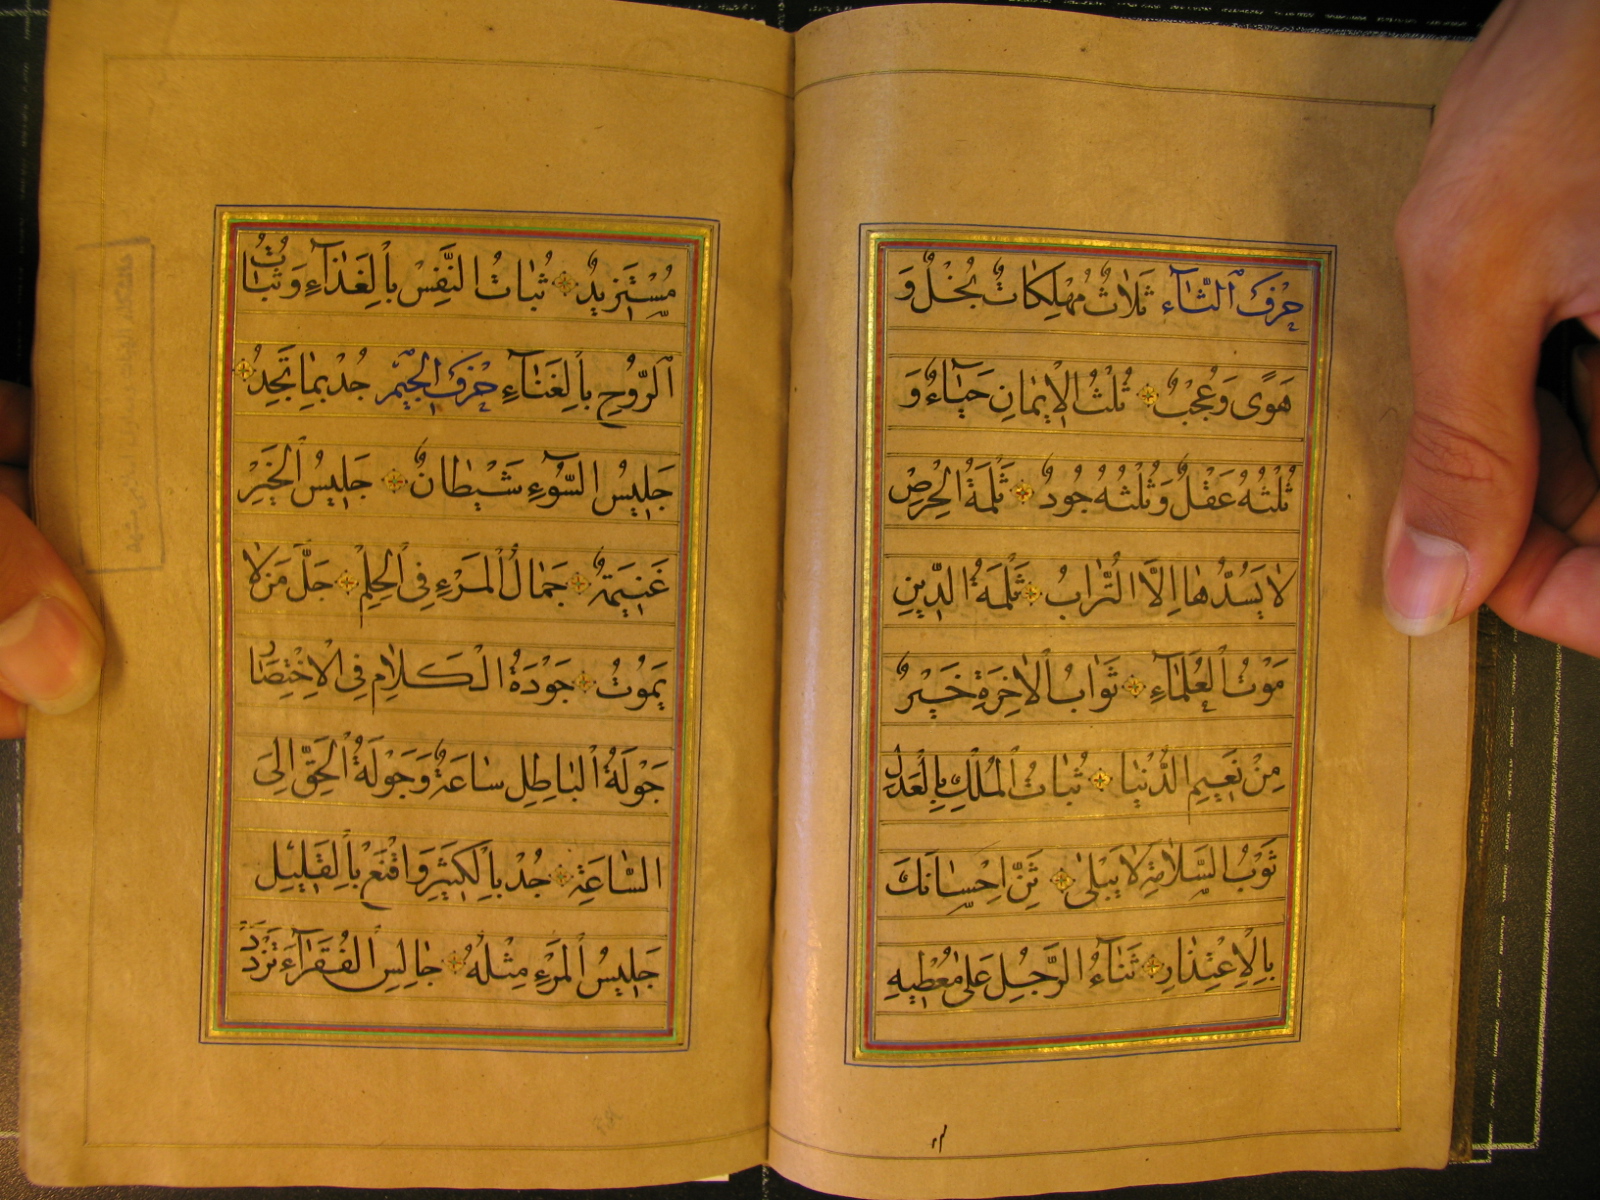 حَرْفُ الثَّاءِ ثَلَاثٌ مُهْلِكَاتٌ بُخْلٌ وَ
هَوًى وَعُجْبٌ ثُلْثُ الْإِيمَانِ حَيَاءٌ وَ
ثُلْثُهُ عَقْلٌ وَثُلْثُهُ جُودٌ ثَلْمَةُ الْحِرْصِ
لَا يَسُدُّهَا إِلَّا التُّرَابُ ثَلْمَةُ الدِّينِ
مَوْتُ الْعُلَمَاءِ ثَوَابُ الْآخِرَةِ خَيْرٌ
مِنْ نَعِيمِ الدُّنْيَا ثُبَاتُ الْمُلْكِ بِالْعَدْلِ
ثَوْبُ السَّلَامَةِ لَا يَبْلَى ثَنِّ إِحْسَانَكَ
بِالْإِعْتِذَارِ ثَنَاءُ الرَّجُلِ عَلَى مُعْطِيهِ
مُسْتَزِيدٌ ثُبَاتُ النَّفْسِ بِالْغَذَاءِ وَثُبَاتُ
الرُّوحِ بِالْغَنَاءِ حَرْفُ الْجِيمِ جُدْ بِمَا تَجِدُ
جَلِيسُ السُّوءِ شَيْطَانٌ جَلِيسُ الْخَيْرِ
غَنِيمَةٌ جَمَالُ الْمَرْءِ فِي الْحِلْمِ جَلَّ مَنْ لَا
يَمُوتُ جَوْدَةُ الْكَلَامِ فِي الْاِخْتِصَارِ
جَوْلَةُ الْبَاطِلِ سَاعَةٌ وَجَوْلَةُ الْحَقِّ إِلَى
السَّاعَةِ جُدْ بِالْكَثِيرِ وَاقْنَعْ بِالْقَلِيلِ
جَلِيسُ الْمَرْءِ مِثْلُهُ جَالِسِ الْفُقَرَاءَ تَزْدَدْ